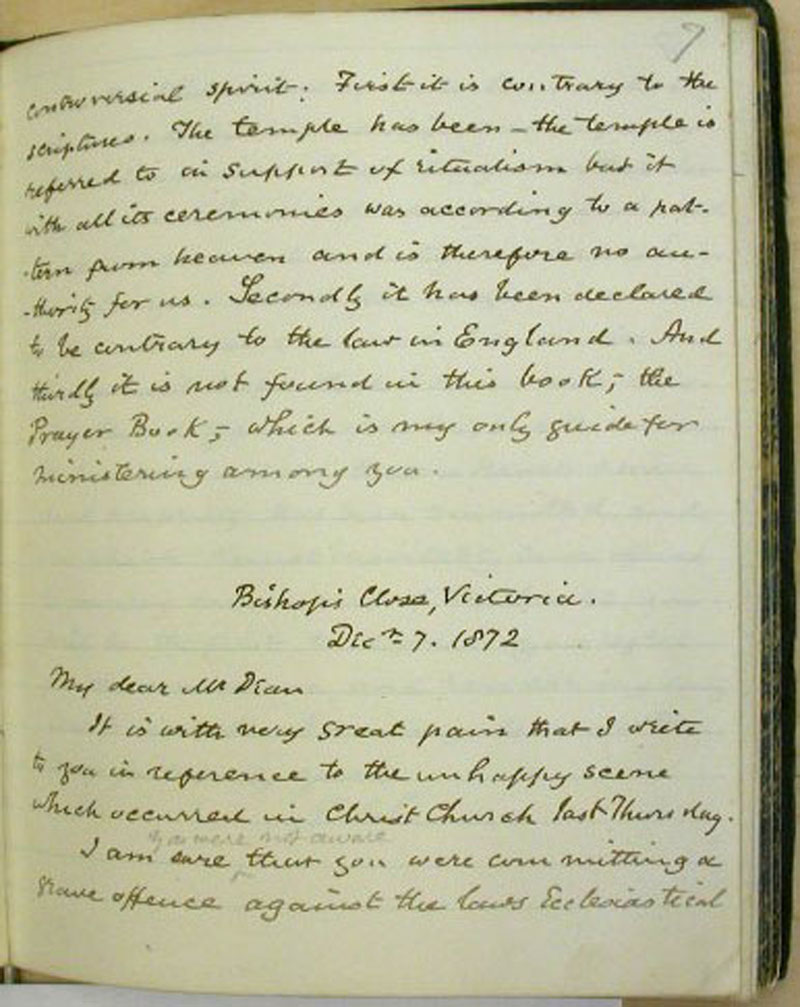 7
controversial spirit: First it is contrary to the
scriptures. The temple has been - the temple is
referred to in support of ritualism but it
with all its ceremonies was according to a pat-
-tern from heaven and is therefore no au-
-thority for us. Secondly it has been declared
to be contrary to the law in England. And
thirdly it is not found in this book; the
Prayer Book; which is my only guide for
ministering among you.
Bishop's Close, Victoria.
Decr 7. 1872
My dear Mr Dean
It is with very great pain that I write
to you in reference to the unhappy scene
which occurred in Christ Church last Thursday.
you were not aware
I am sure that you were committing a
grave offence against the laws Ecclesiastical